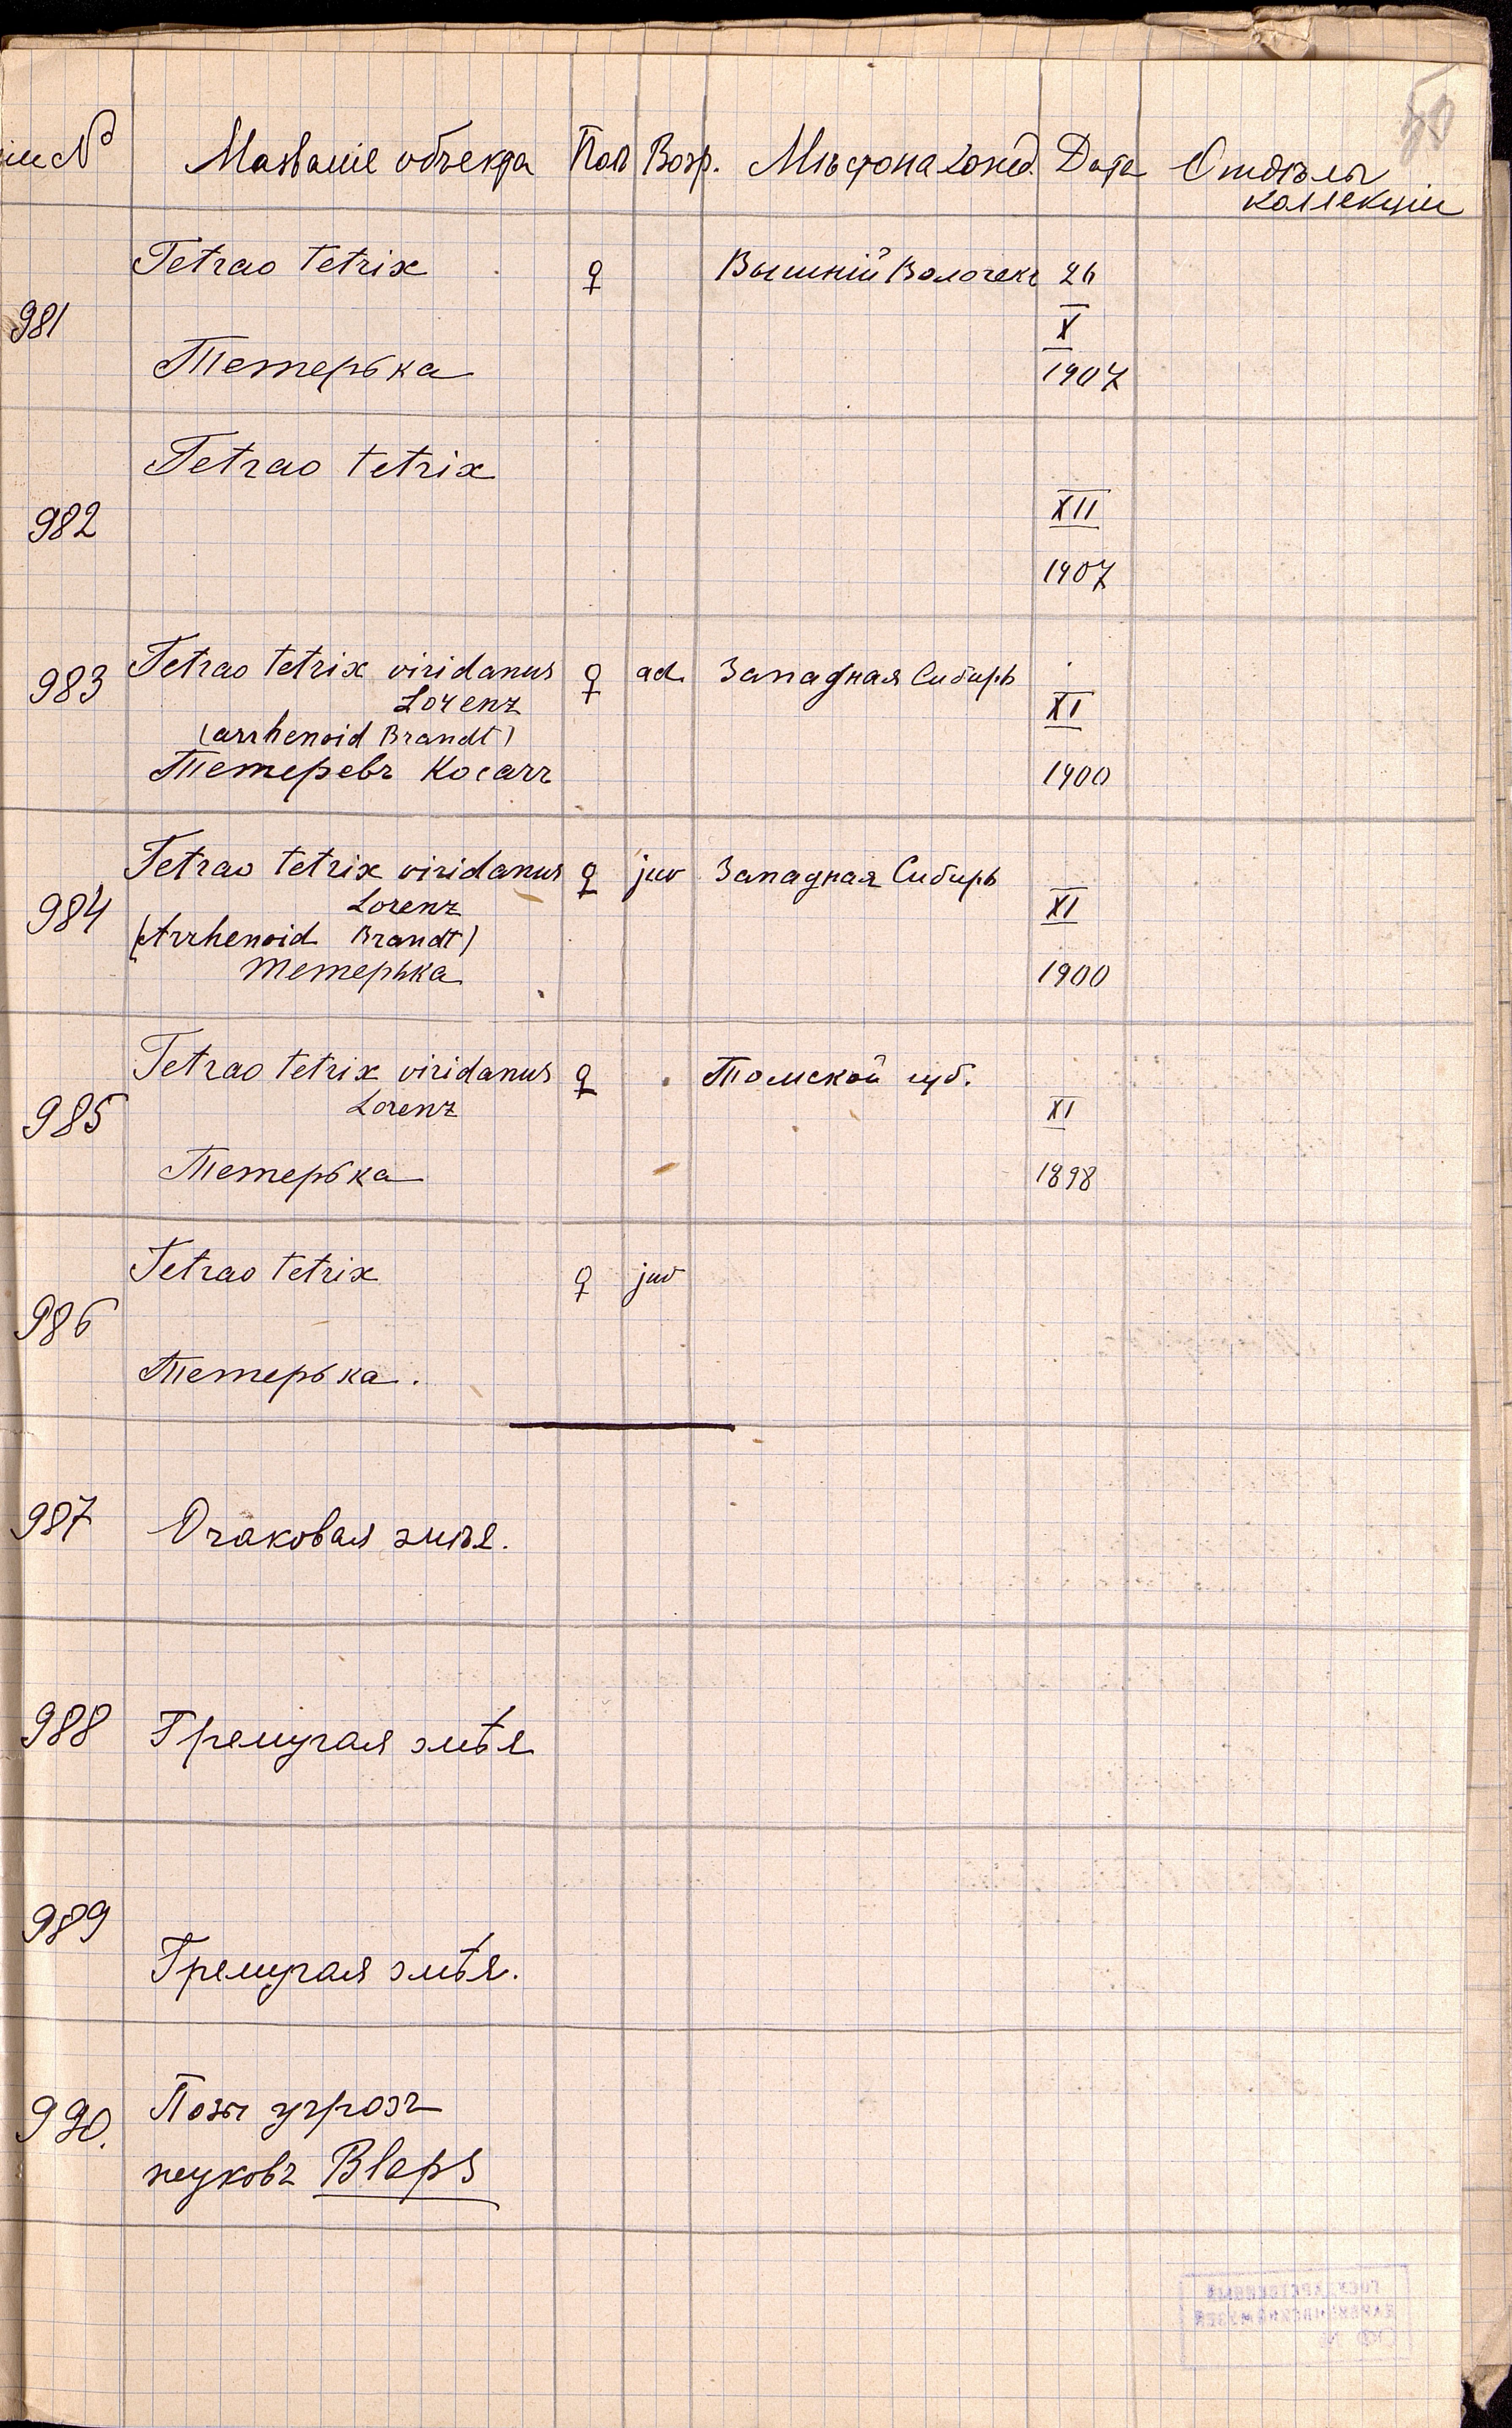 50
№ Названіе объекта Полъ Возр. Мѣстонахожд. Дата Отдѣлы
коллекціи
Tetrao tetrix ♀ Вышній Волочекъ 26
981 X
Тетерька 1907
Tetrao tetrix
982 XII
1907
983 Tetrao tetrix viridanus ♀ ad. Западная Сибирь
Lorenz XI
(arrhenoid Brandt)
Тетеревъ Косачъ 1900
Tetrao tetrix viridanus ♀ juv Западная Сибирь
984 Lorenz XI
(Arrhenoid Brandt)
тетерька 1900
Tetrao tetrix viridanus ♀ Томской губ.
985 Lorenz XI
Тетерька 1898
Tetrao tetrix ♀ juv
986
Тетерька.
987 Очковая змѣя.
988 Гремучая змѣя
989
Гремучая змѣя.
990. Позы угрозы
жуковъ Blaps
ГОСУДАРСТВЕННЫЙ
ДАРВИНОВСКИЙ МУЗЕЙ